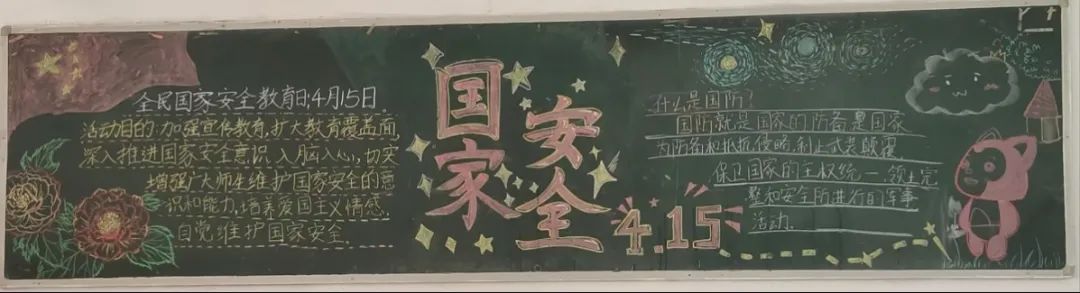 全民国家安全教育日:4月15日
活动目的:加强宣传教育,扩大教育覆盖面,
深入推进国家安全意识入脑入心,切实
增强广大师生维护国家安全的意
识和能力,培养爱国主义情感,
自觉维护国家安全.
国家
安全
4.15
什么是国防?
国防就是国家的防备是国家
为防备和抵抗侵略,制止武装颠覆,
保卫国家的主权统一,领土完
整和安全所进行的军事
活动.